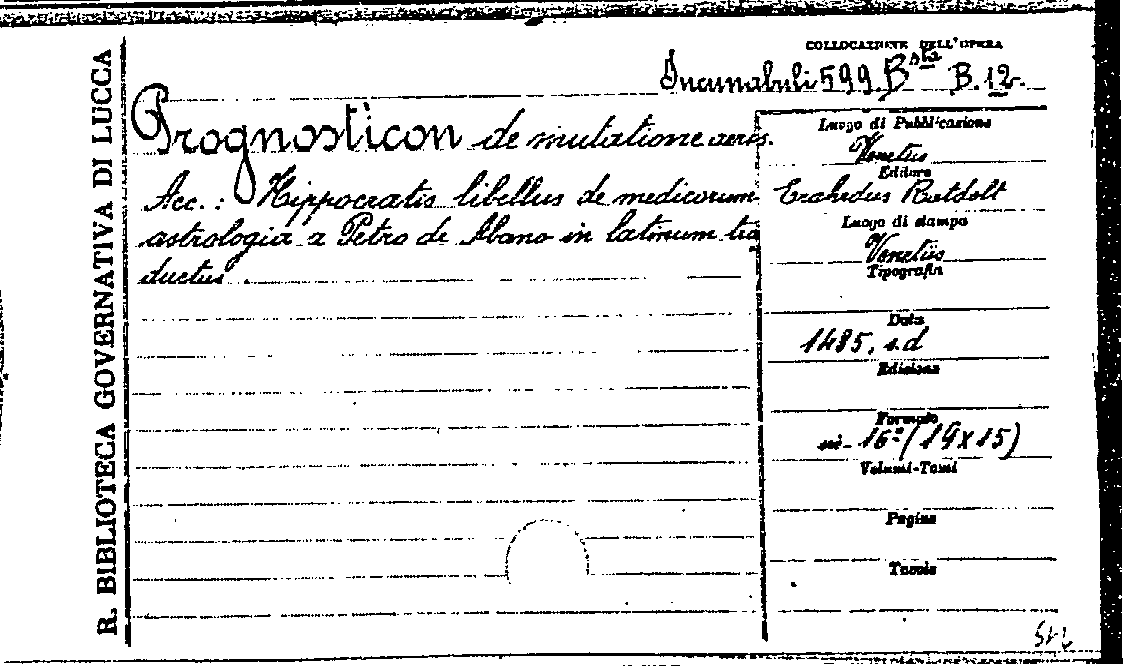 R. BIBLIOTECA GOVERNATIVA DI LUCCA
COLLOCAZIONE DELL'OPERA
Incunabuli 599. Bta B.12.
Prognosticon de mutatione aeris.
Acc.: Hippocratis libellus de medicorum
astrologia a Petro de Abano in latinum tra
ductus.
Luogo di Pubblicazione
Venetiis
Editore
Erahedus Ratdolt
Luogo di stampa
Venetiis
Tipografia
Data
1485, s.d
Edizione
Formato
in-16º (19x15)
Volumi-Tomi
Pagine
Tavole